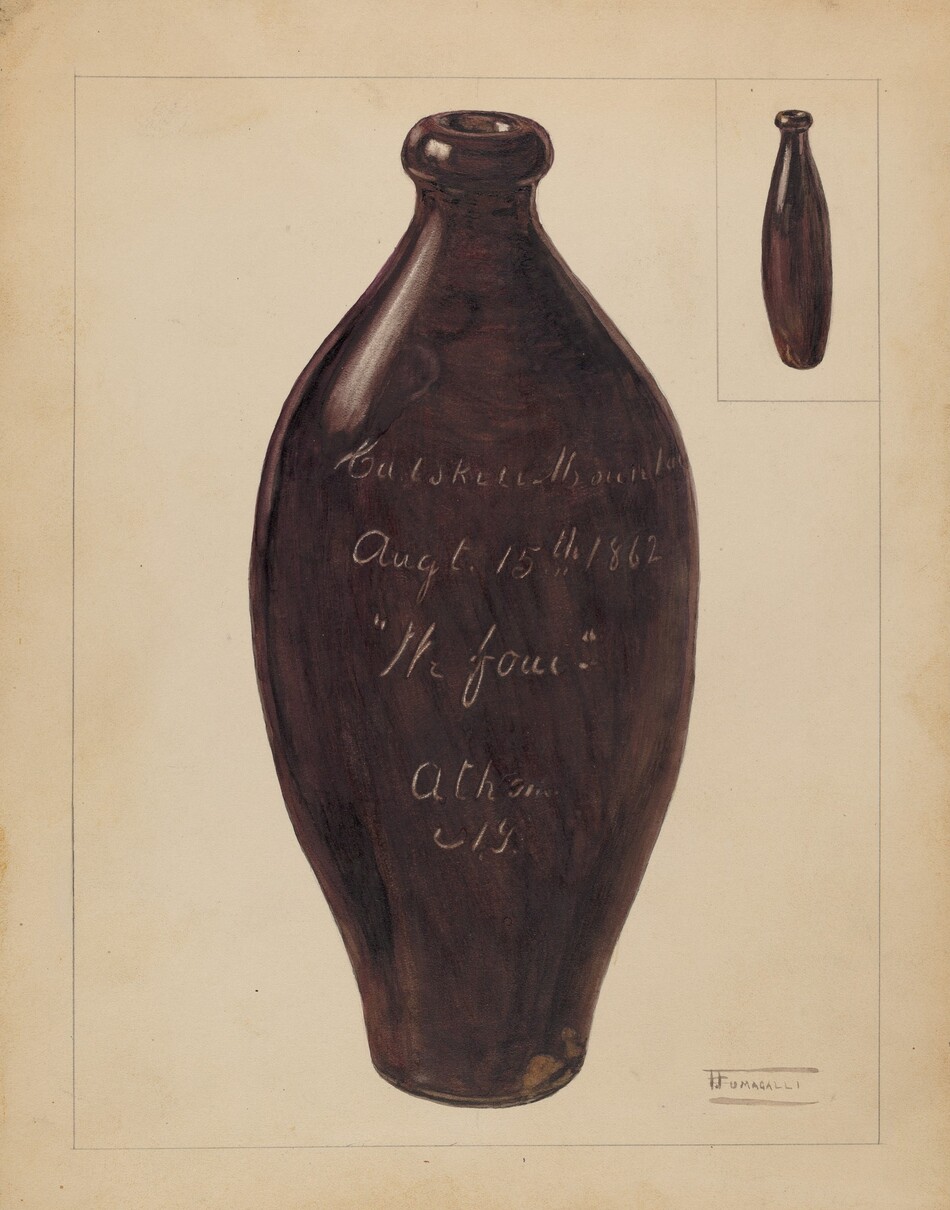 Catskill Mountai
Augt. 15th 1862
"We four"
Athens
NY.
FUMAGALLI